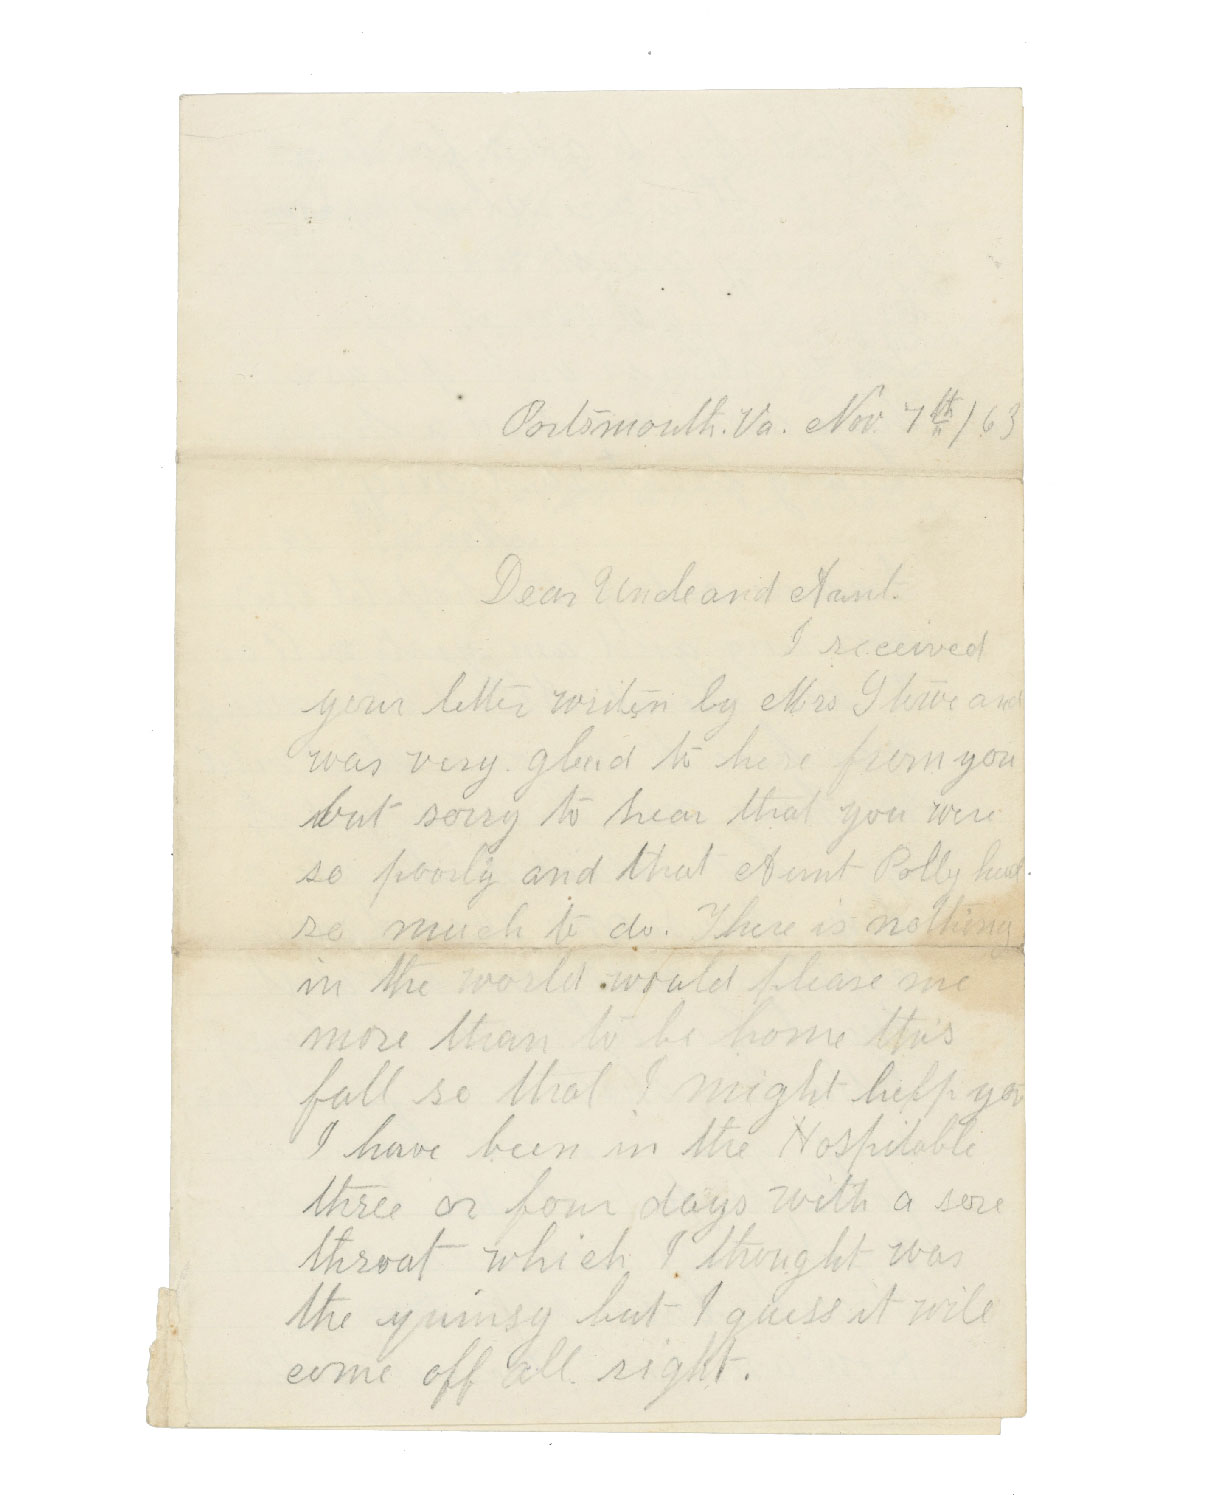 Portsmouth. Va. Nov. 7th /63
Dear Uncle and Aunt.
I received
your letter writen by Mrs and
was very glad to here from you
but sorry to hear that you were
so poorly and that Aunt Polly had
so much to do. There is nothing
in the world would please me
more than to be home this
fall so that I might help you
I have been in the Hospitable
three or four days with a sore
throat which I thought was
the quinsy but I guess it will
come off all right.